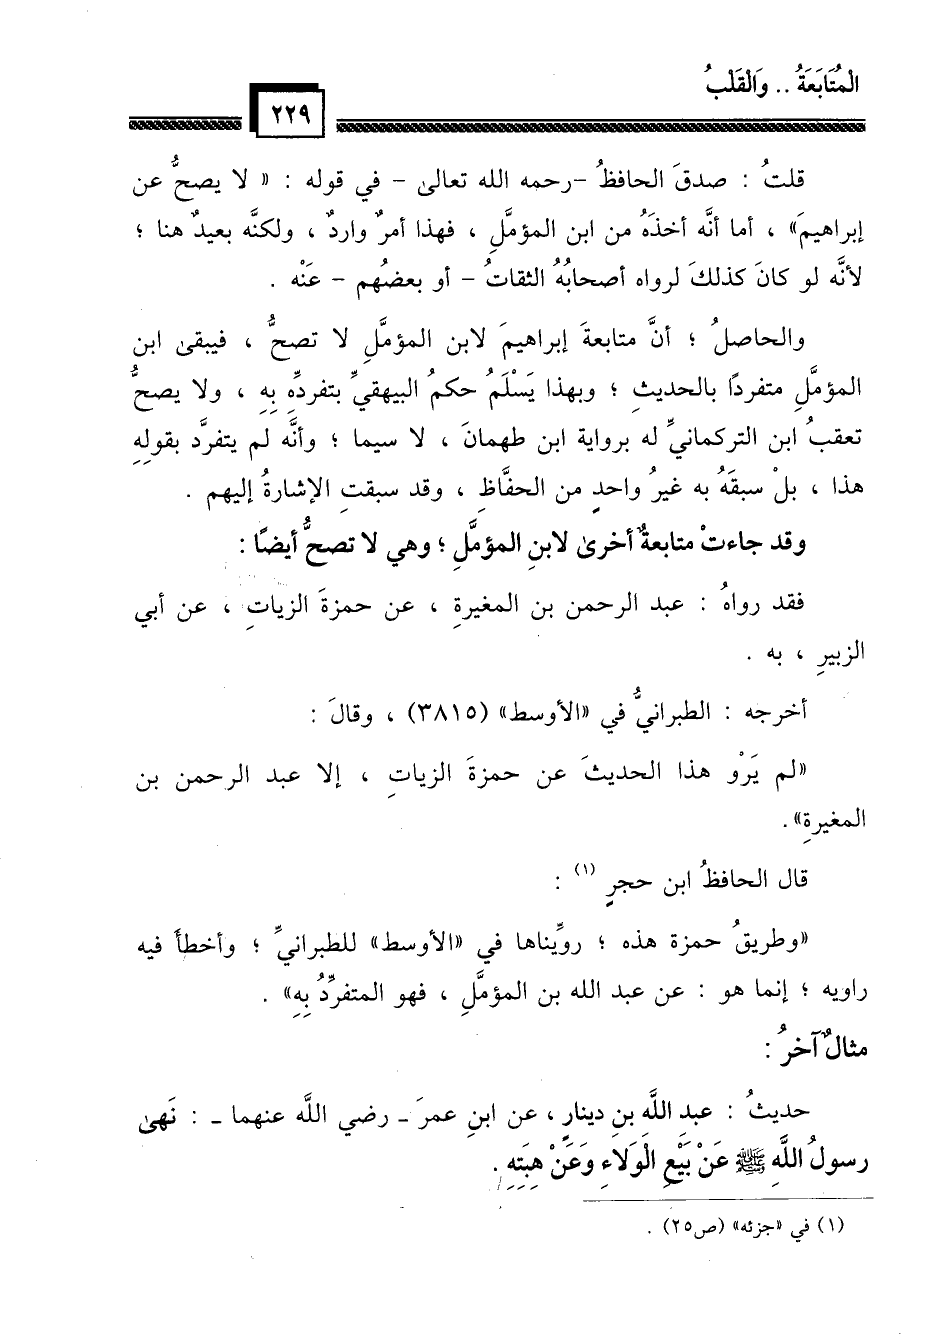 الْمُتَابَعَةُ .. وَالْقَلْبُ
٢٢٩
قلتُ : صدقَ الحافظُ -رحمه الله تعالى - في قوله : « لا يصحُّ عن
إبراهيمَ» ، أما أنَّه أخذَهُ من ابن المؤمَّلِ ، فهذا أمرٌ واردٌ ، ولكنَّه بعيدٌ هنا ؛
لأنَّه لو كانَ كذلكَ لرواه أصحابُهُ الثقاتُ - أو بعضُهم - عَنْه .
والحاصلُ ؛ أنَّ متابعةَ إبراهيمَ لابن المؤمَّلِ لا تصحُّ ، فيبقى ابن
المؤمَّلِ متفردًا بالحديثِ ؛ وبهذا يَسْلَمُ حكمُ البيهقيِّ بتفردِّهِ بِهِ ، ولا يصحُّ
تعقبُ ابن التركمانيِّ له برواية ابن طهمانَ ، لا سيما ؛ وأنَّه لم يتفرَّد بقولِهِ
هذا ، بلْ سبقَهُ به غيرُ واحدٍ من الحفَّاظِ ، وقد سبقتِ الإشارةُ إليهم .
وقد جاءتْ متابعةٌ أخرى لابنِ المؤمَّلِ ؛ وهي لا تصحُّ أيضًا :
فقد رواهُ : عبد الرحمن بن المغيرةِ ، عن حمزةَ الزياتِ ، عن أبي
الزبيرِ ، به .
أخرجه : الطبرانيُّ في «الأوسط» (٣٨١٥) ، وقالَ :
«لم يَرْو هذا الحديثَ عن حمزةَ الزياتِ ، إلا عبد الرحمن بن
المغيرةِ».
قال الحافظُ ابن حجرٍ (١) :
«وطريقُ حمزة هذه ؛ روِّيناها في «الأوسط» للطبرانيِّ ؛ وأخطأَ فيه
راويه ؛ إنما هو : عن عبد الله بن المؤمَّلِ ، فهو المتفرِّدُ بِهِ» .
مثالٌ آخرُ :
حديثُ : عبدِ اللَّه بنِ دينارٍ ، عن ابنِ عمرَ ـ رضي اللَّه عنهما ـ : نَهى
رسولُ اللَّهِ ﷺ عَنْ بَيْعِ الْوَلَاءِ وَعَنْ هِبَتِهِ .
(١) في «جزئه» (ص٢٥) .